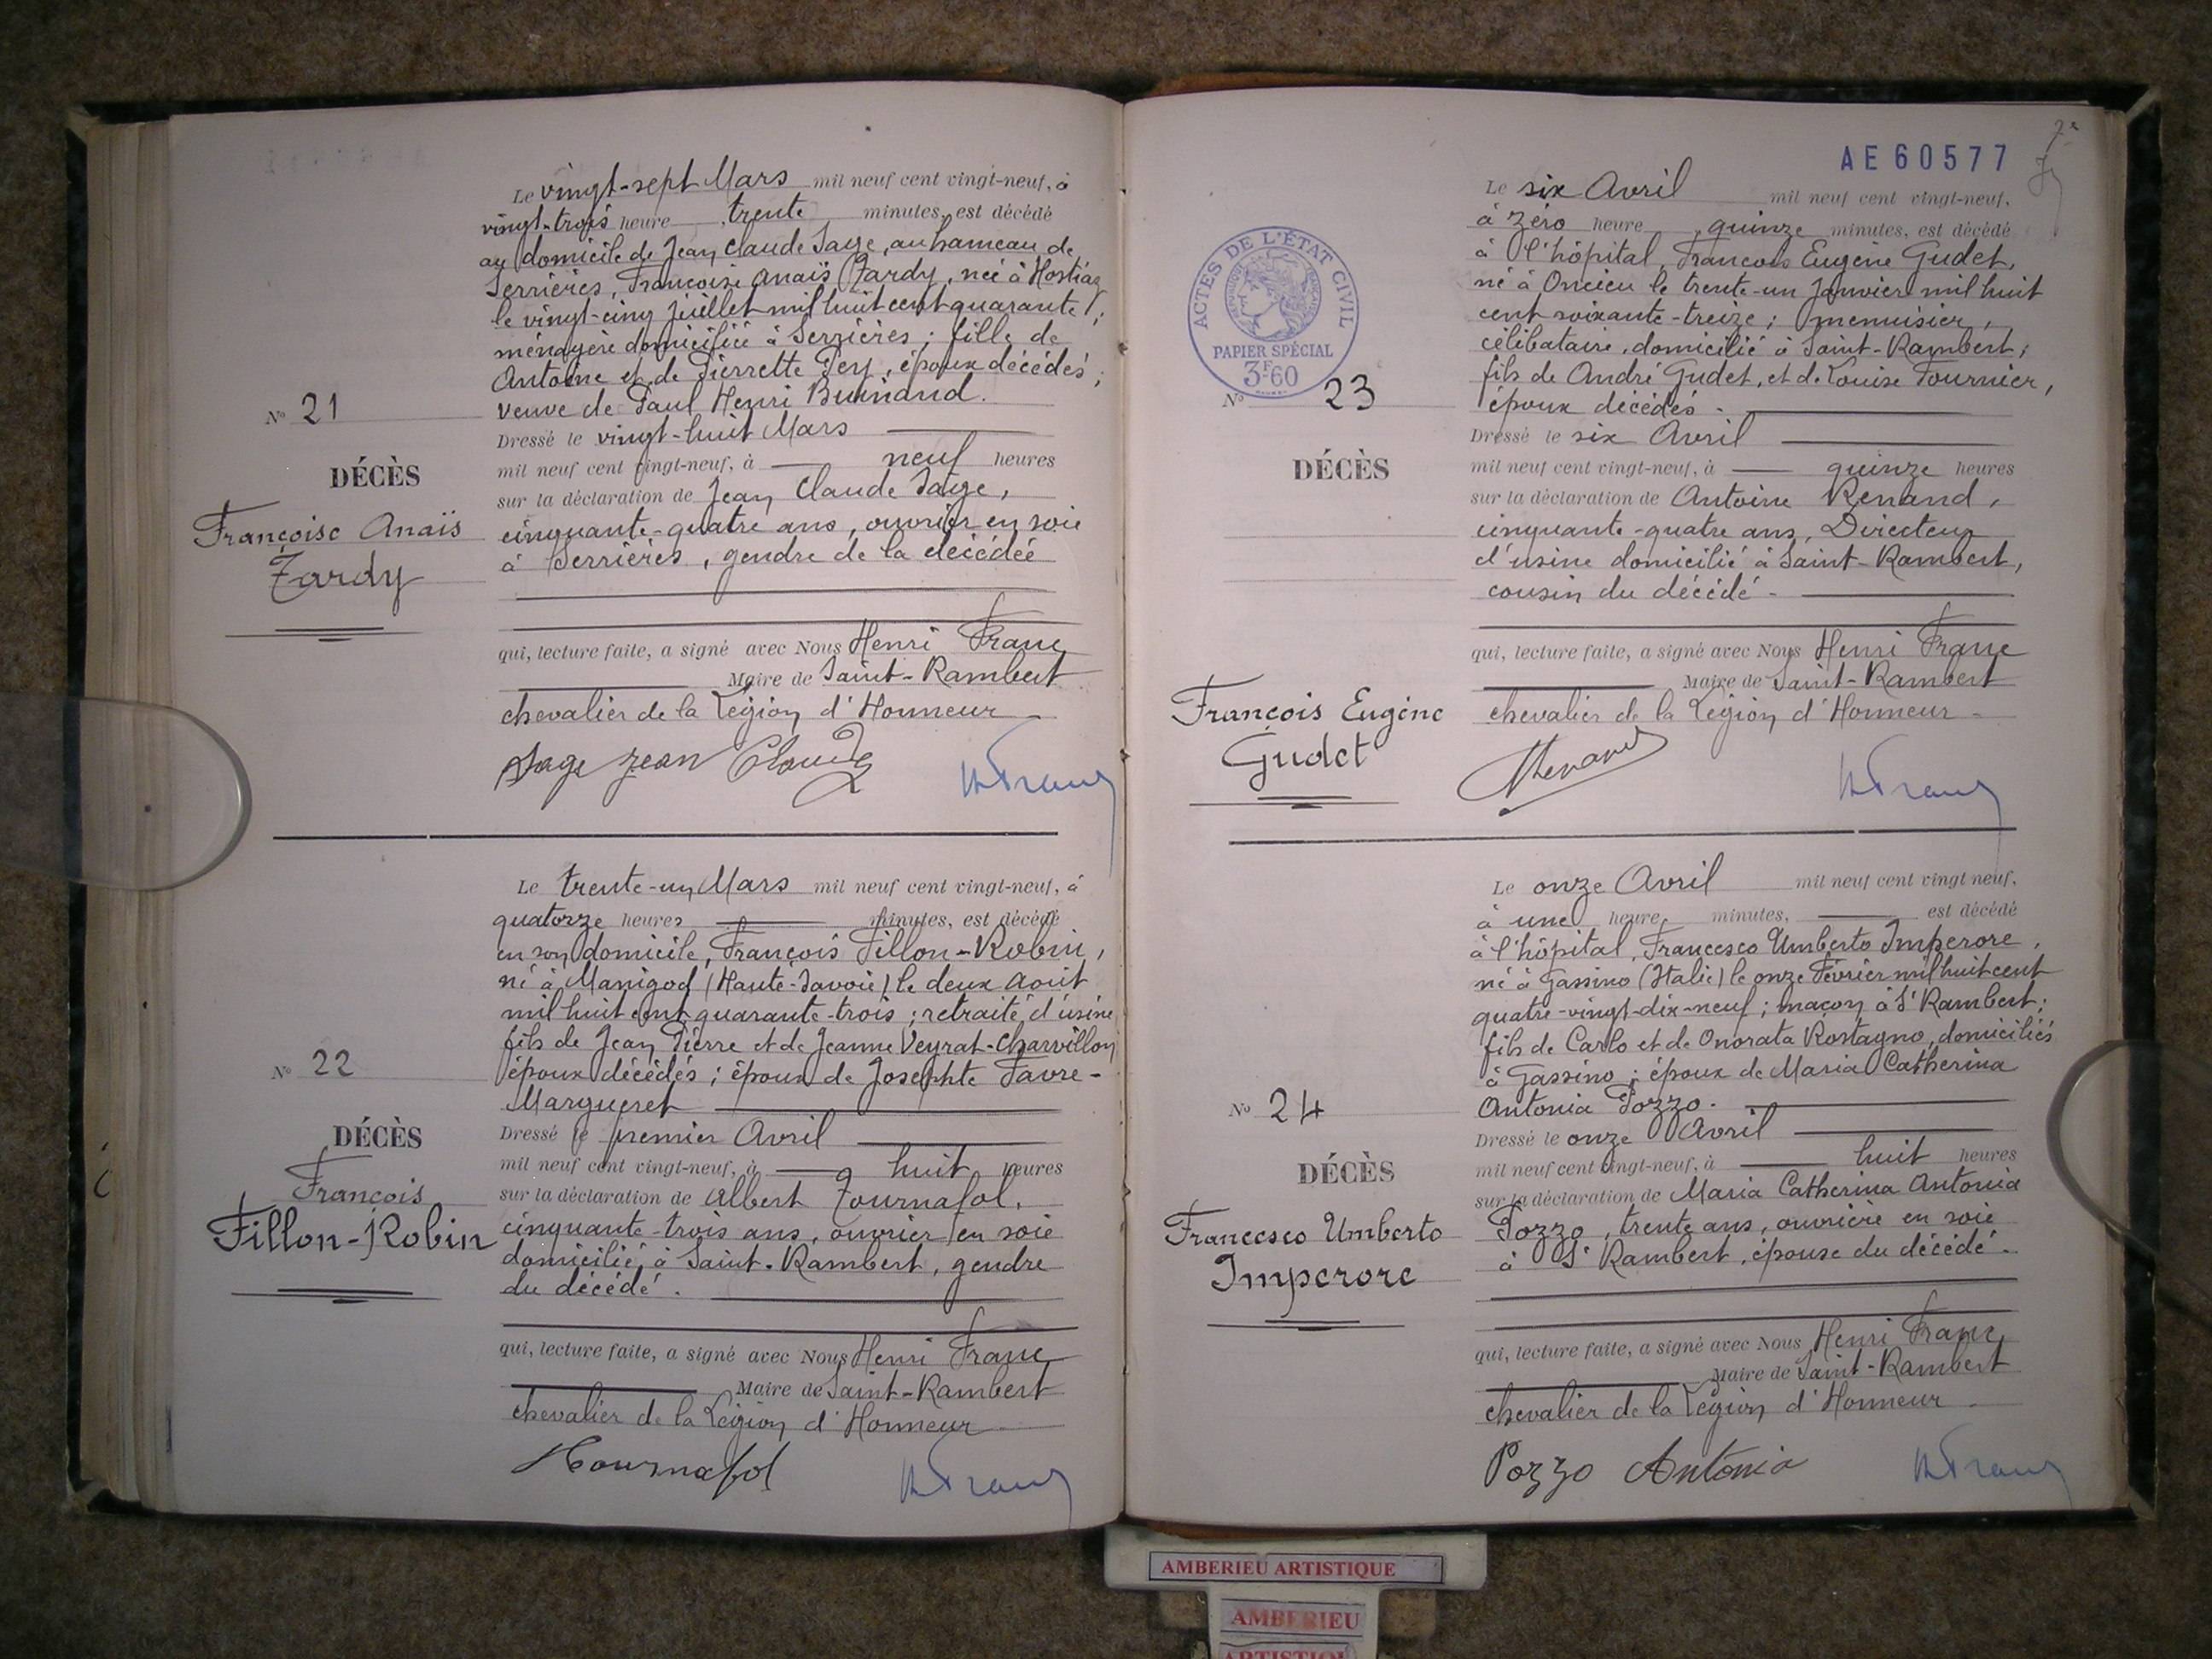 Le vingt-sept Mars mil neuf cent vingt-neuf, à
vingt-trois heure trente minutes, est décédé
au domicile de Jean Claude Sage, au hameau de
Serrières, Françoise Anaïs Tardy, née à Hostiaz
le vingt-cinq juillet mil huit cent quarante ;
ménagère domiciliée à Serrières ; fille de
Antoine et de Pierrette Pey, époux décédés ;
veuve de Paul Henri Buinand.
Dressé le vingt-huit Mars
mil neuf cent vingt-neuf, à neuf heures
sur la déclaration de Jean Claude Sage,
cinquante-quatre ans, ouvrier en soie
à Serrières, gendre de la décédée
qui, lecture faite, a signé avec Nous Henri Franc
Maire de Saint-Rambert
chevalier de la Légion d'Honneur
Sage Jean Claude
HFranc
No 21
DÉCÈS
Françoise Anaïs
Tardy
Le trente-un Mars mil neuf cent vingt-neuf, à
quatorze heures minutes, est décédé
en son domicile, François Fillon-Robin,
né à Manigod (Haute-Savoie) le deux Août
mil huit cent quarante-trois ; retraité d'usine
fils de Jean Pierre et de Jeanne Veyrat-Charvillon
époux décédés ; époux de Josephte Favre-
Margueret
Dressé le premier Avril
mil neuf cent vingt-neuf, à huit heures
sur la déclaration de Albert Tournafol,
cinquante-trois ans, ouvrier en soie
domicilié à Saint-Rambert, gendre
du décédé.
qui, lecture faite, a signé avec Nous Henri Franc
Maire de Saint-Rambert
chevalier de la Légion d'Honneur
Tournafol
HFranc
No 22
DÉCÈS
François
Fillon-Robin
AE 60577
7e
ACTES DE L'ÉTAT CIVIL
PAPIER SPÉCIAL
3F60
Le six Avril mil neuf cent vingt-neuf,
à zéro heure quinze minutes, est décédé
à l'hôpital, François Eugène Gudet,
né à Oncieu le trente-un Janvier mil huit
cent soixante-treize ; menuisier,
célibataire, domicilié à Saint-Rambert ;
fils de André Gudet, et de Louise Fournier,
époux décédés.
Dressé le six Avril
mil neuf cent vingt-neuf, à quinze heures
sur la déclaration de Antoine Renand,
cinquante-quatre ans, Directeur
d'usine domicilié à Saint-Rambert,
cousin du décédé
qui, lecture faite, a signé avec Nous Henri Franc
Maire de Saint-Rambert
chevalier de la Légion d'Honneur
HFranc
No 23
DÉCÈS
François Eugène
Gudet
Le onze Avril mil neuf cent vingt neuf,
à une heure minutes, est décédé
à l'hôpital, Francesco Umberto Imperore,
né à Gassino (Italie) le onze Février mil huit cent
quatre-vingt-dix-neuf ; maçon à St Rambert ;
fils de Carlo et de Onorata Rostagno, domiciliés
à Gassino ; époux de Maria Catherina
Antonia Pozzo.
Dressé le onze Avril
mil neuf cent vingt-neuf, à huit heures
sur la déclaration de Maria Catherina Antonia
Pozzo, trente ans, ouvrière en soie
à St Rambert, épouse du décédé.
qui, lecture faite, a signé avec Nous Henri Franc
Maire de Saint-Rambert
chevalier de la Légion d'Honneur
Pozzo Antonia
HFranc
No 24
DÉCÈS
Francesco Umberto
Imperore
AMBERIEU ARTISTIQUE
AMBERIEU
ARTISTIQUE